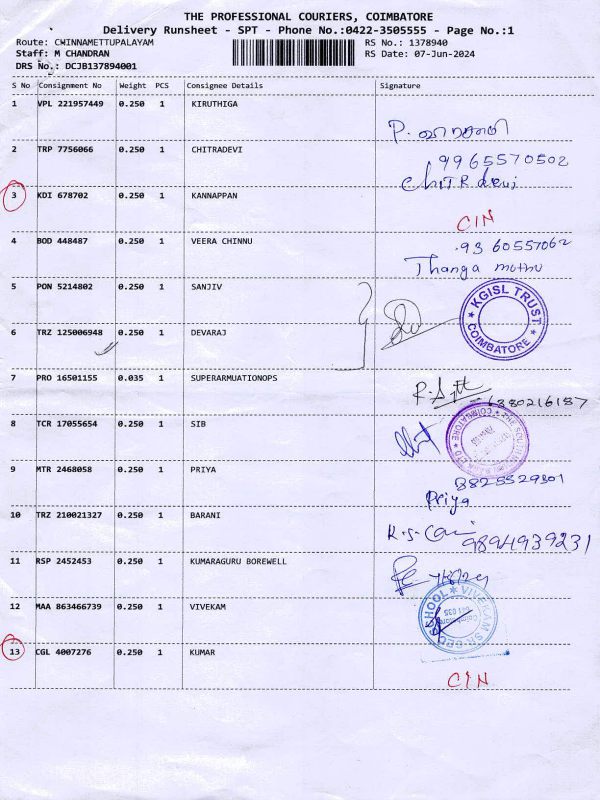 THE PROFESSIONAL COURIERS, COIMBATORE
Delivery Runsheet - SPT - Phone No.:0422-3505555 - Page No.:1
Route: CWINNAMETTUPALAYAM
RS No.: 1378940
Staff: M CHANDRAN
RS Date: 07-Jun-2024
DRS No.: DCJB137894001
S No Consignment No Weight PCS Consignee Details Signature
1 VPL 221957449 0.250 1 KIRUTHIGA
P.
2 TRP 7756066 0.250 1 CHITRADEVI
9965570502
ChiTRadevi
3 KDI 678702 0.250 1 KANNAPPAN
CIN
4 BOD 448487 0.250 1 VEERA CHINNU
9360557062
Thanga muthu
5 PON 5214802 0.250 1 SANJIV
KGISL TRUST
COIMBATORE
6 TRZ 125006948 0.250 1 DEVARAJ
7 PRO 16501155 0.035 1 SUPERARMUATIONOPS
6380216187
8 TCR 17055654 0.250 1 SIB
COIMBATORE
9 MTR 2468058 0.250 1 PRIYA
8825529301
Priya
10 TRZ 210021327 0.250 1 BARANI
9894939231
11 RSP 2452453 0.250 1 KUMARAGURU BOREWELL
12 MAA 863466739 0.250 1 VIVEKAM
VIVEKAM SR.SEC SCHOOL
13 CGL 4007276 0.250 1 KUMAR
CIN